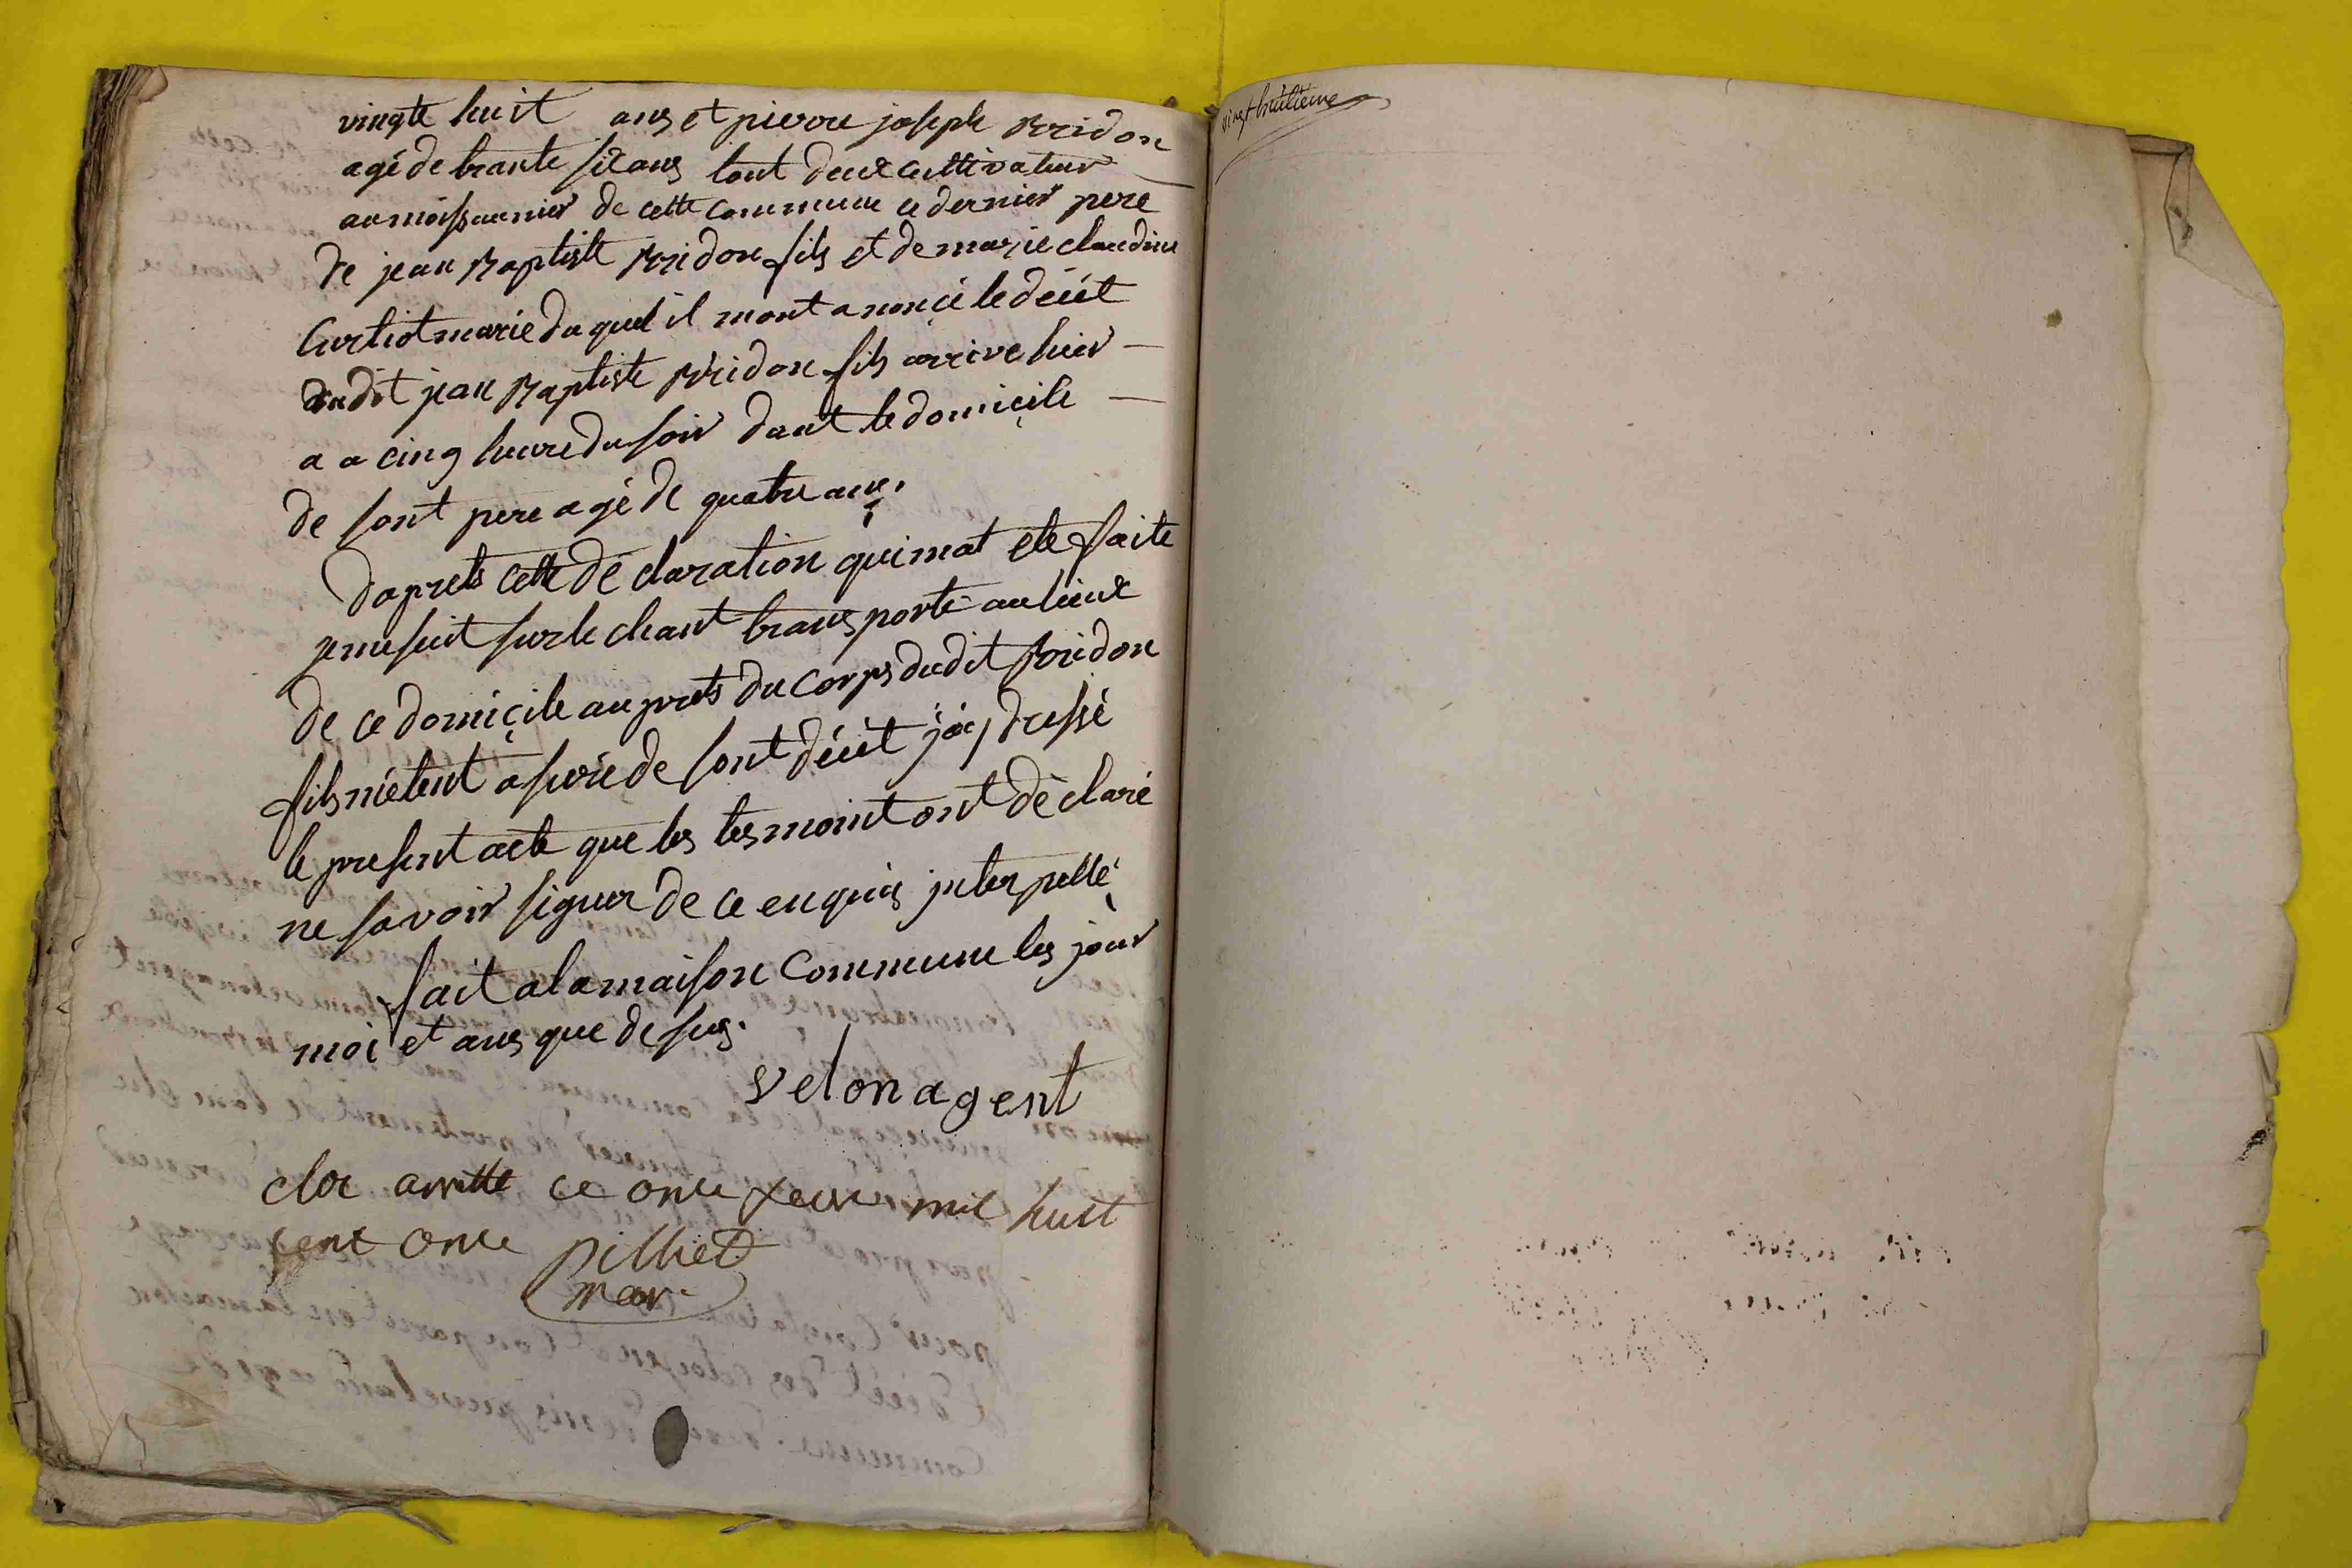 vingte huit ans et pierre joseph Bridon
agé de trante six ans tout deux cultivateur
au moissonnier de cette commune ce dernier pere
de jean Baptiste Bridon fils et de marie claudine
Curtiot marie du quel il mont anoncé le décét
dudit jean Baptiste Bridon fils arrive hier
a a cinq heure du soir dant le domicile
de sont pere agé de quatre ans.
daprets cette déclaration qui mat ete faite
je me suit sur le chant transporté au lieux
de ce domicile auprets du corps dudit Bridon
fils métent asuré de sont décét jáy dressé
le present acte que les tesmoint ont déclaré
ne savoir signer de ce enquis interpellé
fait a la maison commune les jour
moi et ans que desus.
velon agent
clos arretté ce onze mil huit
cent onze
pilliet
mair
vingt huitieme